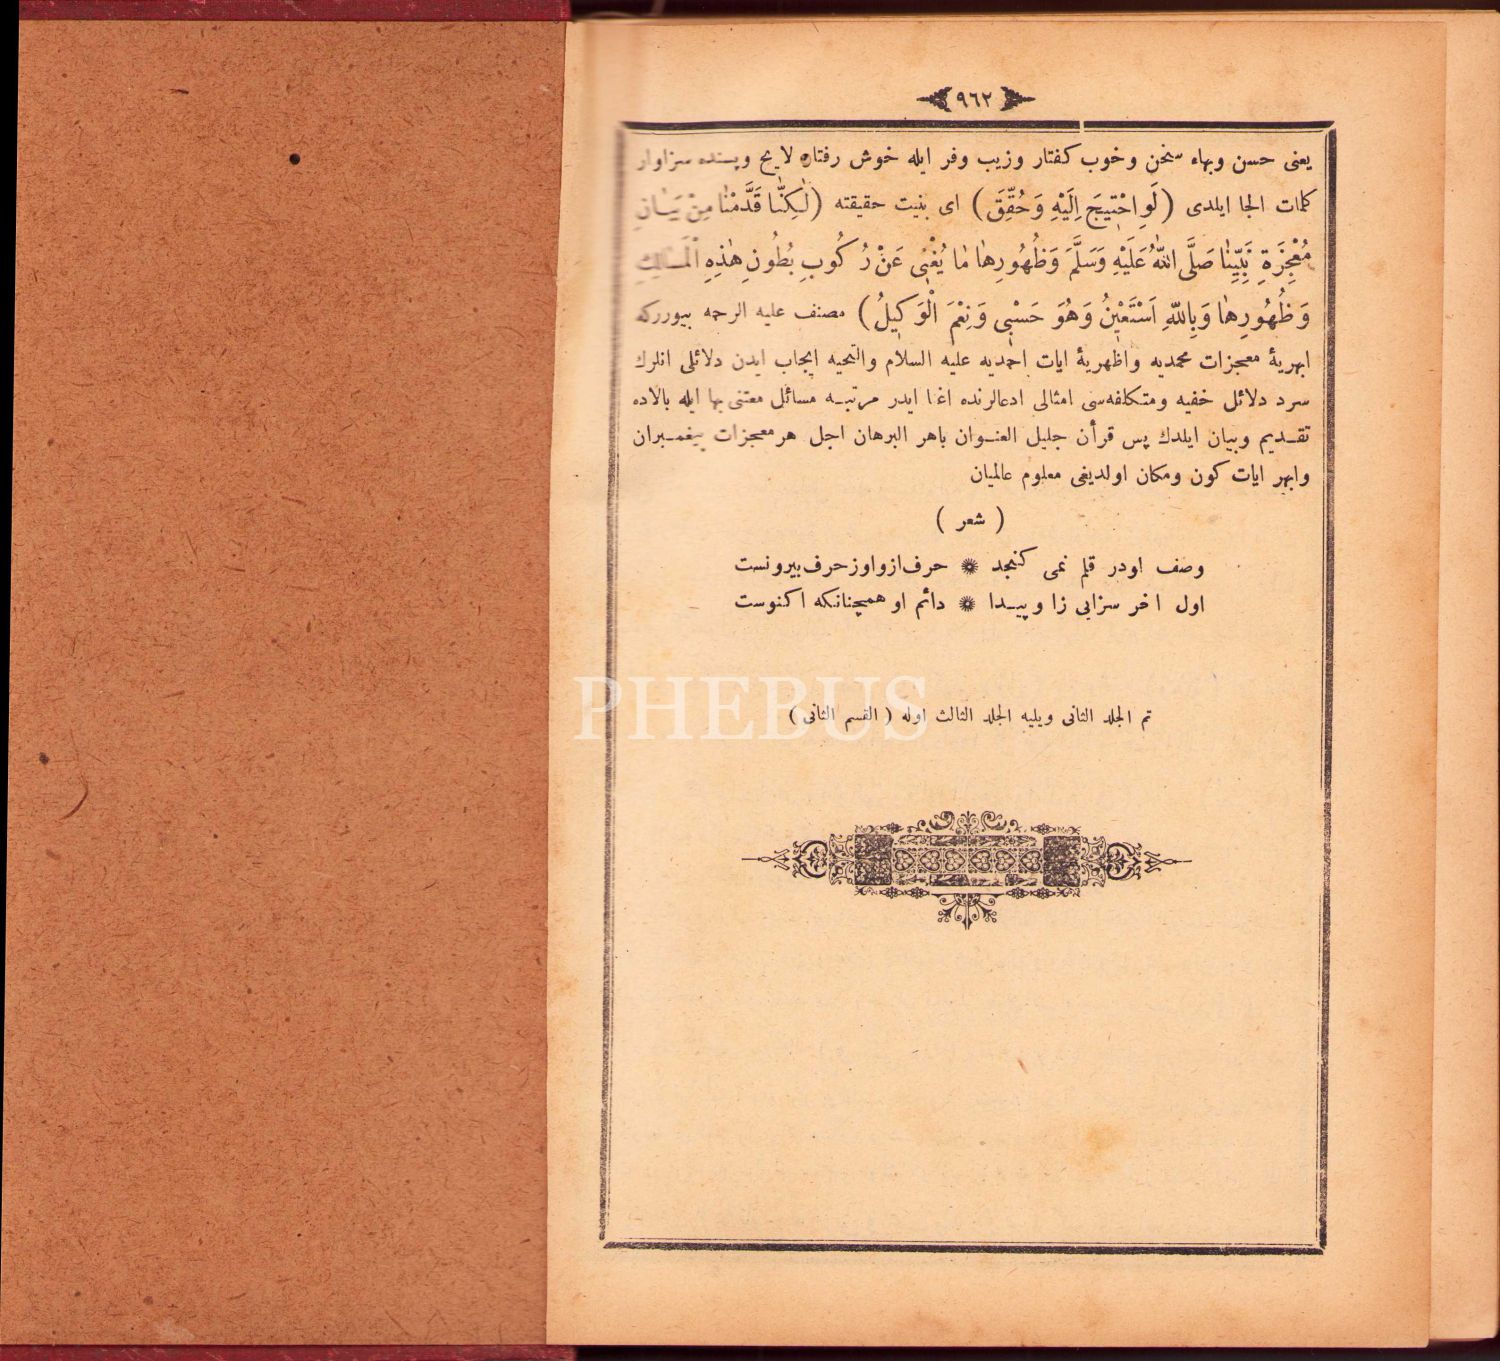 ٩٦٢
يعنى حسن وبهاء سخن وخوب كفتار وزيب وفر ايله خوش رفتاره لايح وپسنده سزاوار
كلمات الجا ايلدى (لَوِ احْتٖيجَ اِلَيْهِ وَحُقِّقَ) اى بنيت حقيقته (لٰكِنَّا قَدَّمْنٰا مِنْ بَيَانِ
مُعْجِزَةِ نَبِيِّنٰا صَلَّى اللّٰهُ عَلَيْهِ وَسَلَّمَ وَظُهُورِهٰا مٰا يُغْنٖى عَنْ رُكُوبِ بُطُونِ هٰذِهِ الْمَسَالِكِ
وَظُهُورِهٰا وَبِاللّٰهِ اَسْتَعٖينُ وَهُوَ حَسْبٖى وَنِعْمَ الْوَكٖيلُ) مصنف عليه الرحمه بيوررکه
ابهريۀ معجزات محمديه واظهريۀ ايات احمديه عليه السلام والتحيه ايجاب ايدن دلائلى انلرك
سرد دلائل خفيه ومتكلفه‌سى امثالى ادعالرنده اغنا ايدر مرتبه مسائل معتنى بها ايله بالاده
تقديم وبيان ايلدك پس قرأن جليل العنوان باهر البرهان اجل هر معجزات پيغمبران
وابهر ايات كون ومكان اولديغى معلوم عالميان
( شعر )
وصف اودر قلم نمى كنجد ❋ حرف ازو اوز حرف بيرونست
اول اخر سزابى زا وپيدا ❋ دائم او همچنانكه اكنوست
PHEBUS
تم الجلد الثانى ويليه الجلد الثالث اوله ( القسم الثانى )